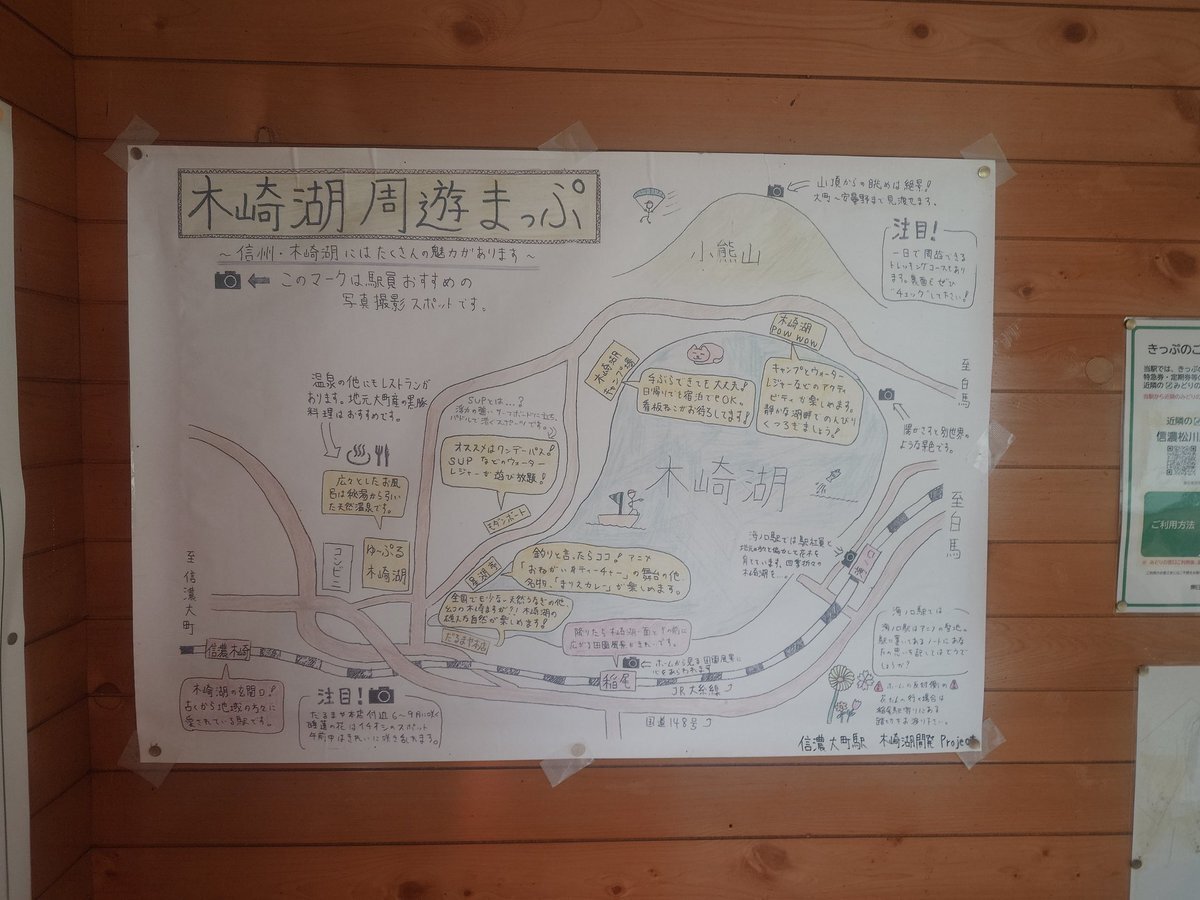 木崎湖 周遊まっぷ
～信州・木崎湖にはたくさんの魅力があります～
このマークは駅員おすすめの
写真撮影スポットです。
山頂からの眺めは絶景!
大町～安曇野まで見渡せます。
小熊山
注目!
一日で周遊できる
トレッキングコースもあり
ます。裏面もぜひ
"チェック"して下さい!
至白馬
木崎湖
POW WOW
キャンプとウォーター
レジャーなどのアクティ
ビティが楽しめます。
静かな湖畔でのんびり
くつろぎましょう!
木崎湖
キャンプ場
手ぶらできても大丈夫!
日帰りでも宿泊でもOK。
看板ねこがお待ちしてます!
温泉の他にもレストランが
あります。地元大町産の黒豚
料理はおすすめです。
広々としたお風
呂は秘湯から引い
た天然温泉です。
コンビニ
ゆ～ぷる
木崎湖
SUPとは…?
オススメはワンデーパス!
SUPなどのウォーター
レジャーを遊び放題!
モダンボート
木崎湖
陽がさすと別世界の
ような景色です。
至白馬
釣りと言ったらココ!アニメ
「おねがいティーチャー」の舞台の他
名物、「きりスカレー」が楽しめます。
全国でも少ない天然うなぎの他、
雄大な自然が楽しめます!
だるまや本店
海ノ口
海ノ口駅では駅社員と
育てています。四季折々の
木崎湖を…。
至信濃大町
信濃木崎
木崎湖の玄関口!
古くから地域の方々に
愛されている駅です。
注目!
だるまや本店付近6～9月に咲く
睡蓮の花はイチオシのスポット
午前中はきれいに咲き乱れます。
降りたら木崎湖・面と下の前に
広がる田園風景がきれいです。
稲尾
ホームから見る田園風景に
心をあらわれます
JR大糸線
国道148号
海ノ口駅では
海ノ口駅はアニメの聖地。
駅に置いてあるノートにあな
たの思いを記してはどうで
しょうか?
ホームの反対側の
信濃大町駅 木崎湖開発 Project
きっぷのご
当駅では、きっぷの
特急券・定期券等の
近隣のみどりの
近隣の
信濃松川
ご利用方法